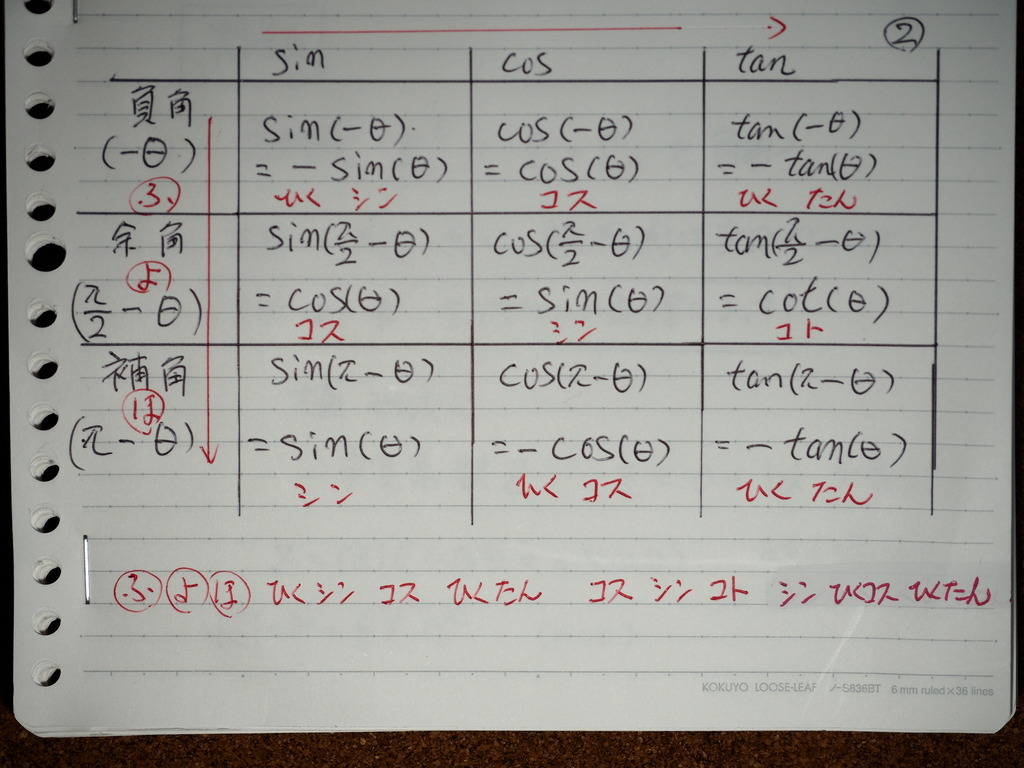 ②
sin cos tan
負角
(-θ)
ふ
sin(-θ)
= - sin(θ)
ひく シン
cos(-θ)
= cos(θ)
コス
tan(-θ)
= - tan(θ)
ひく たん
余角
よ
(π/2 - θ)
sin(π/2 - θ)
= cos(θ)
コス
cos(π/2 - θ)
= sin(θ)
シン
tan(π/2 - θ)
= cot(θ)
コト
補角
ほ
(π - θ)
sin(π - θ)
= sin(θ)
シン
cos(π - θ)
= - cos(θ)
ひく コス
tan(π - θ)
= - tan(θ)
ひく たん
ふ よ ほ ひくシン コス ひくたん コス シン コト シン ひくコス ひくたん
KOKUYO LOOSE-LEAF ノ-S836BT 6 mm ruled×36 lines